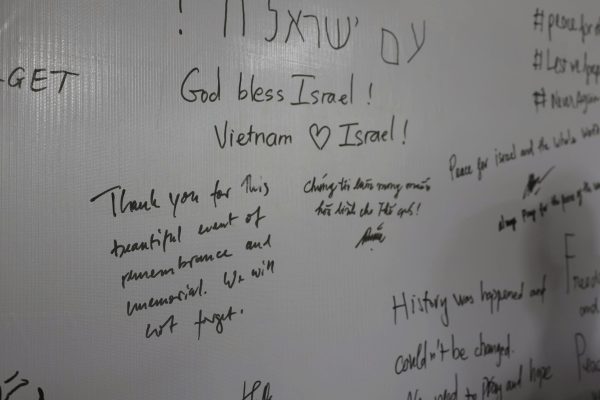 עם ישראל חי !
-GET
God bless Israel !
Vietnam ♡ Israel !
Thank you for this
beautiful event of
remembrance and
memorial. We will
not forget.
Chúng tôi luôn mong muốn
hòa bình cho Thế giới!
#peace for
#Let's
#NeverAgain
Peace for israel and the whole world
pray for the peace of the
History was happened and
couldn't be changed.
need to pray and hope
Freed
and
Peac